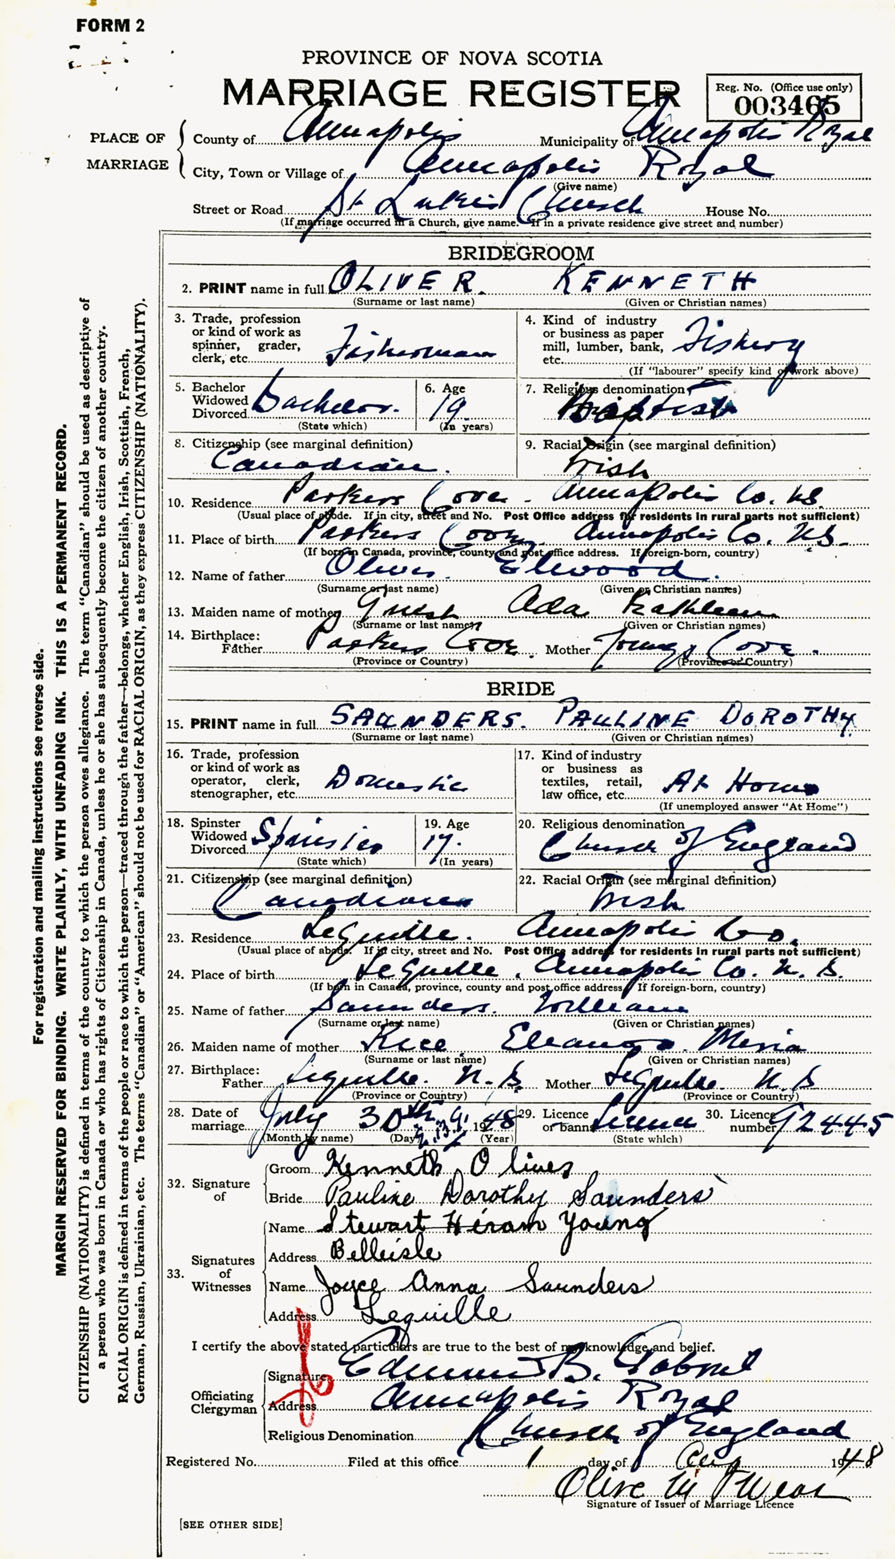 FORM 2
PROVINCE OF NOVA SCOTIA
MARRIAGE REGISTER
Reg. No. (Office use only)
003465
PLACE OF MARRIAGE
County of Annapolis Municipality of Annapolis Royal
City, Town or Village of Annapolis Royal
(Give name)
Street or Road St Lukes Church House No.
(If marriage occurred in a Church, give name. If in a private residence give street and number)
BRIDEGROOM
2. PRINT name in full OLIVER KENNETH
(Surname or last name) (Given or Christian names)
3. Trade, profession or kind of work as spinner, grader, clerk, etc. Fisherman
4. Kind of industry or business as paper mill, lumber, bank, etc. Fishery
(If "labourer" specify kind of work above)
5. Bachelor Widowed Divorced Bachelor.
(State which)
6. Age 19
(In years)
7. Religious denomination Baptist
8. Citizenship (see marginal definition) Canadian.
9. Racial Origin (see marginal definition) Irish
10. Residence Parkers Cove. Annapolis Co. N.S.
(Usual place of abode. If in city, street and No. Post Office address for residents in rural parts not sufficient)
11. Place of birth Parkers Cove Annapolis Co. N.S.
(If born in Canada, province, county and post office address. If foreign-born, country)
12. Name of father Oliver Elwood.
(Surname or last name) (Given or Christian names)
13. Maiden name of mother Ada Kathleen
(Surname or last name) (Given or Christian names)
14. Birthplace: Father Parkers Cove. Mother Youngs Cove.
(Province or Country) (Province or Country)
BRIDE
15. PRINT name in full SAUNDERS. PAULINE DOROTHY.
(Surname or last name) (Given or Christian names)
16. Trade, profession or kind of work as operator, clerk, stenographer, etc. Domestic
17. Kind of industry or business as textiles, retail, law office, etc. At Home
(If unemployed answer "At Home")
18. Spinster Widowed Divorced Spinster
(State which)
19. Age 17.
(In years)
20. Religious denomination Church of England
21. Citizenship (see marginal definition) Canadian
22. Racial Origin (see marginal definition) Irish
23. Residence Lequille. Annapolis Co.
(Usual place of abode. If in city, street and No. Post Office address for residents in rural parts not sufficient)
24. Place of birth Lequille, Annapolis Co. N.S.
(If born in Canada, province, county and post office address. If foreign-born, country)
25. Name of father Saunders. William
(Surname or last name) (Given or Christian names)
26. Maiden name of mother Rice Eleanor
(Surname or last name) (Given or Christian names)
27. Birthplace: Father Lequille. N.S. Mother Lequille. N.S
(Province or Country) (Province or Country)
28. Date of marriage July 30th 1948
(Month by name) (Day) (Year)
29. Licence or banns Licence
(State which)
30. Licence number 92445
32. Signature of
Groom Kenneth Oliver
Bride Pauline Dorothy Saunders
33. Signatures of Witnesses
Name Stewart Hiram Young
Address Belleisle
Name Joyce Anna Saunders
Address Lequille
I certify the above stated particulars are true to the best of my knowledge and belief.
Officiating Clergyman
Signature Edmund B.
Address Annapolis Royal
Religious Denomination Church of England
Registered No. Filed at this office 1 day of Aug 1948
Olive M
Signature of Issuer of Marriage Licence
[SEE OTHER SIDE]
For registration and mailing instructions see reverse side.
MARGIN RESERVED FOR BINDING. WRITE PLAINLY, WITH UNFADING INK. THIS IS A PERMANENT RECORD.
CITIZENSHIP (NATIONALITY) is defined in terms of the country to which the person owes allegiance. The term "Canadian" should be used as descriptive of
a person who was born in Canada or who has rights of Citizenship in Canada, unless he or she has subsequently become the citizen of another country.
RACIAL ORIGIN is defined in terms of the people or race to which the person—traced through the father—belongs, whether English, Irish, Scottish, French,
German, Russian, Ukrainian, etc. The terms "Canadian" or "American" should not be used for RACIAL ORIGIN, as they express CITIZENSHIP (NATIONALITY).